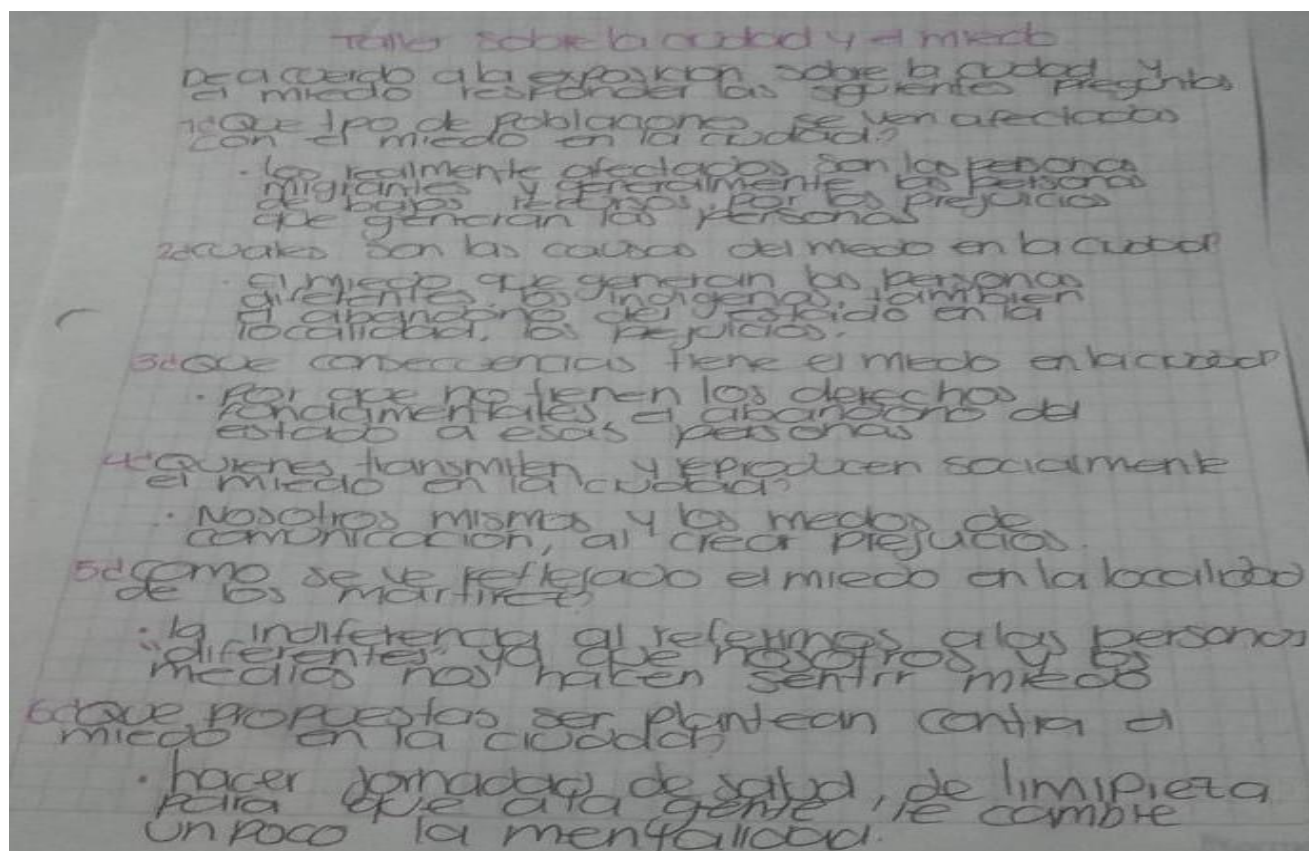 Taller sobre la ciudad y el miedo
De acuerdo a la exposicion sobre la ciudad y
el miedo responder las siguientes preguntas
1¿Que tipo de poblaciones se ven afectadas
con el miedo en la ciudad?
· los realmente afectados son las personas
migrantes y generalmente las personas
de bajos recursos, por los prejuicios
que generan las personas
2¿cuales son las causas del miedo en la ciudad?
· El miedo que generan las personas
diferentes, los indigenas, tambien
el abandono del estado en la
localidad, los prejuicios.
3¿Que consecuencias tiene el miedo en la ciudad
· Por que no tienen los derechos
fundamentales, el abandono del
estado a esas personas
4¿Quienes transmiten y reproducen socialmente
el miedo en la ciudad?
· Nosotros mismos y los medios de
comunicación, al crear prejuicios.
5¿como se ve reflejado el miedo en la localidad
de los martires?
· la indiferencia al referirnos a las personas
"diferentes" ya que nosotros y los
medios nos hacen sentir miedo
6¿Que propuestas ser plantean contra el
miedo en la ciudad?
· hacer jornadas de salud, de limipieza
para que a la gente le cambie
un poco la mentalidad.